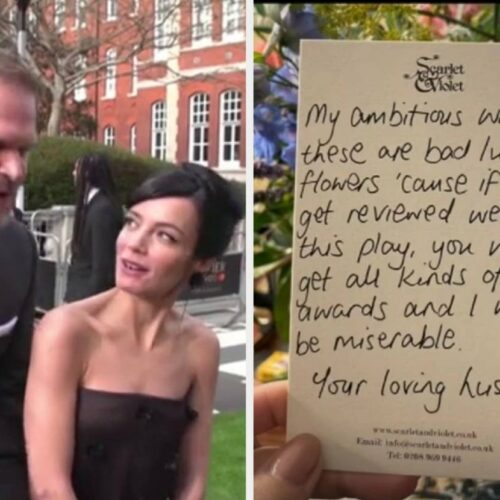 Scarlet
& Violet
My ambitious
these are bad
flowers 'cause if
get reviewed
this play, you
get all kinds of
awards and I
be miserable.
Your loving
www.scarletandviolet.co.uk
Email: info@scarletandviolet.co.uk
Tel: 0208 969 9446